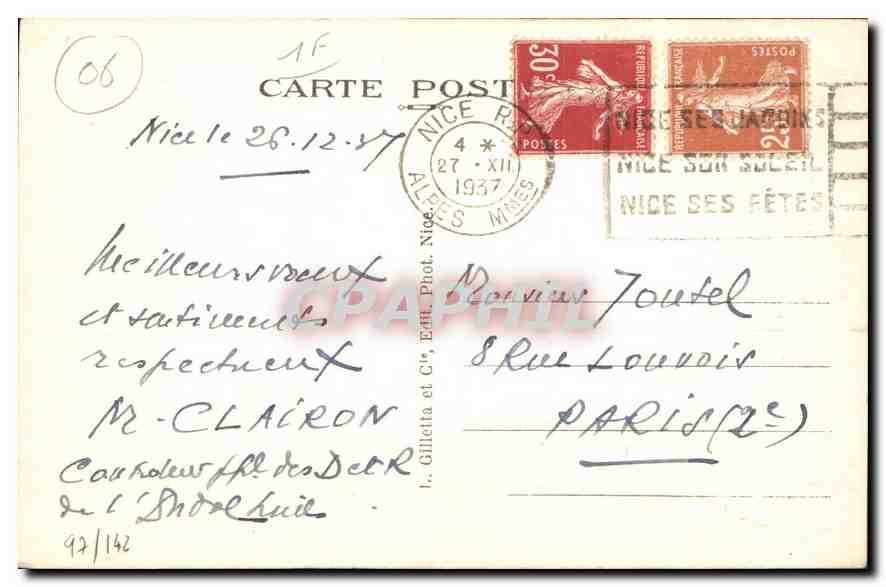 06
1F
CARTE POST
Nice le 26.12.37
NICE R.P.
4 *
27 · XII
1937
ALPES MMES
30c
REPUBLIQUE FRANÇAISE
POSTES
REPUBLIQUE FRANÇAISE
POSTES
25
NICE SES JARDINS
NICE SON SOLEIL
NICE SES FÊTES
Meilleurs vœux
et sentiments
respectueux
M. CLAIRON
des D et R
de l'
97/142
L. Gilletta et Cie, Edit. Phot. Nice.
CPAPHIL
Monsieur
8 Rue Louvois
PARIS (2e)